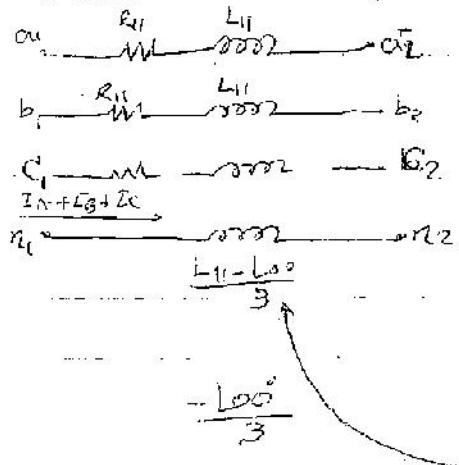 R11 L11
a1 a2
R11 L11
b1 b2
C1 C2
IA + IB + IC
n1 n2
L11 - L00
3
- L00
3